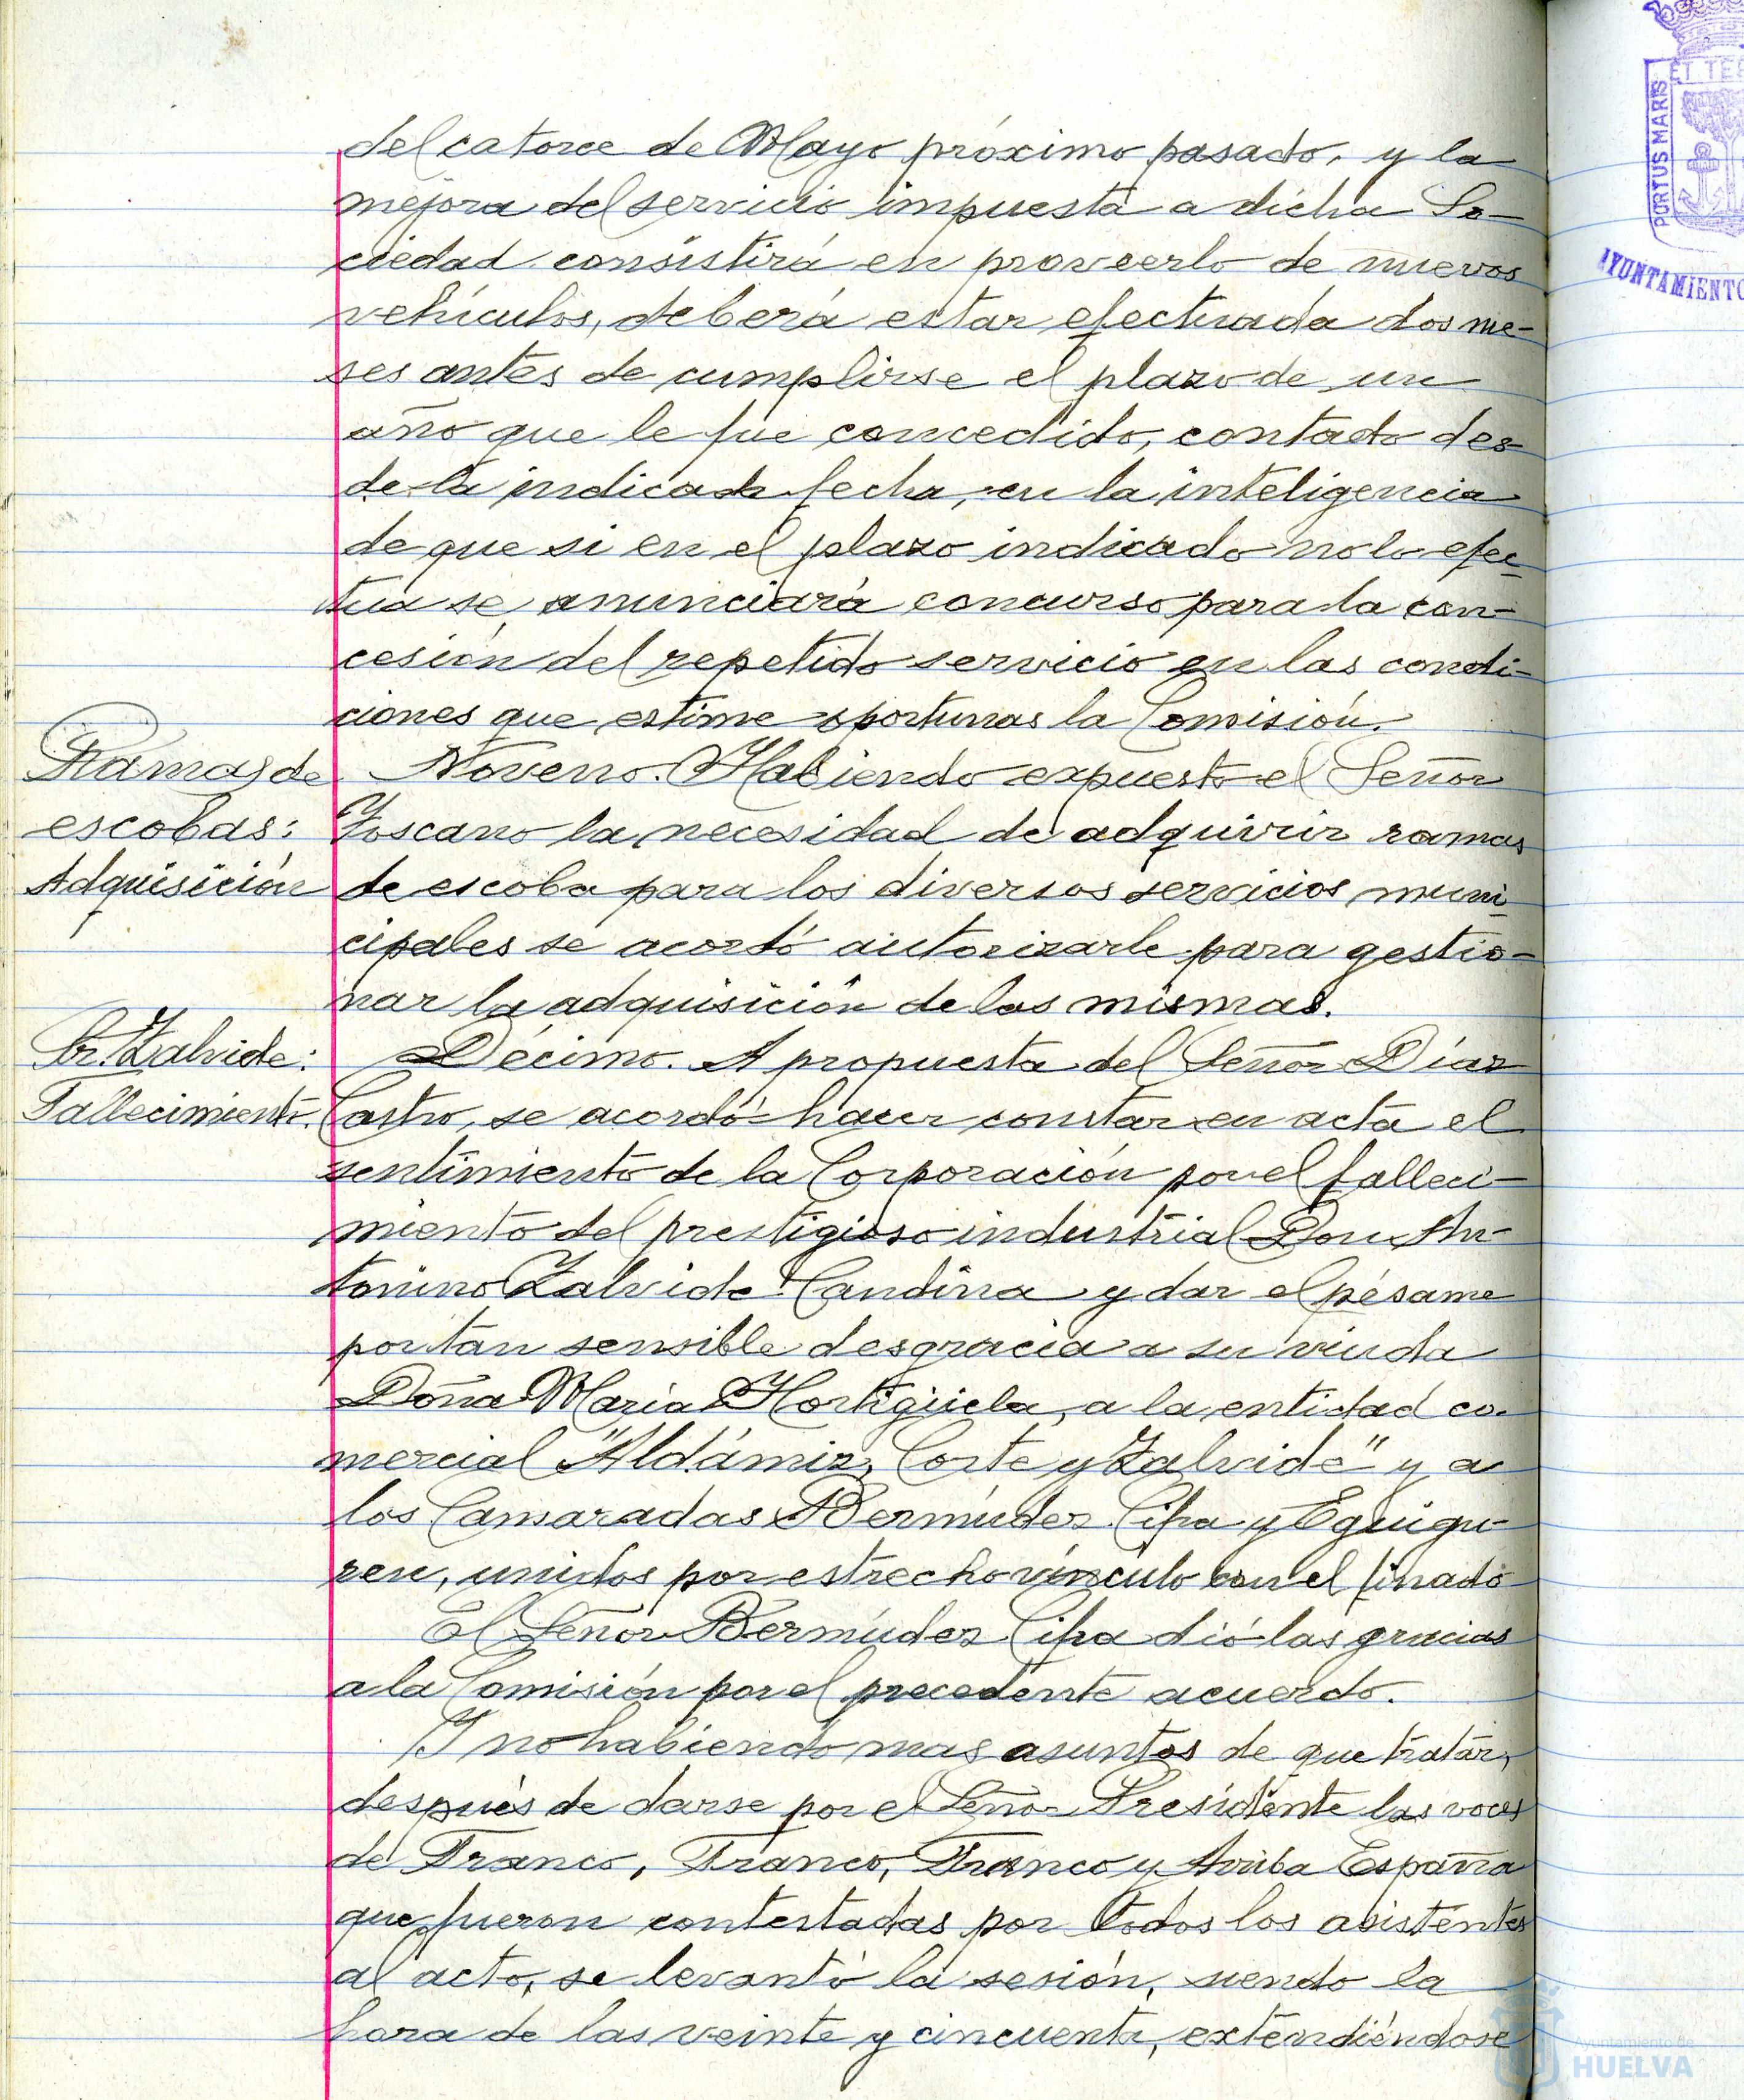 del catorce de Mayo próximo pasado, y la
mejora del servicio impuesta a dicha So-
ciedad consistirá en proveerlo de nuevos
vehículos, deberá estar efectuada dos me-
ses antes de cumplirse el plazo de un
año que le fue concedido, contado des-
de la indicada fecha, en la inteligencia
de que si en el plazo indicado no lo efec-
tua se anunciará concurso para la con-
cesión del repetido servicio en las condi-
ciones que estime oportunas la Comisión.
Ramas de
escobas:
Adquisición
Noveno. Habiendo expuesto el Señor
Toscano la necesidad de adquirir ramas
de escoba para los diversos servicios muni-
cipales se acordó autorizarle para gestio-
nar la adquisición de las mismas.
Sr. Zalvide:
Fallecimiento.
Décimo. A propuesta del Señor Díaz
Castro, se acordó hacer constar en acta el
sentimiento de la Corporación por el falleci-
miento del prestigioso industrial Don An-
tonino Zalvide Candina y dar el pésame
por tan sensible desgracia a su viuda
Doña María Hortigüela, a la entidad co-
mercial "Aldámiz, Corte y Zalvide" y a
los Camaradas Bermúdez Cifra y Eguigu-
ren, unidos por estrecho vínculo con el finado
El Señor Bermúdez Cifra dió las gracias
a la Comisión por el precedente acuerdo.
Y no habiendo mas asuntos de que tratar,
después de darse por el Señor Presidente las voces
de Franco, Franco, Franco y Arriba España
que fueron contestadas por todos los asistentes
al acto, se levantó la sesión, siendo la
hora de las veinte y cincuenta, extendiéndose
PORTUS MARIS
ET TE
AYUNTAMIENTO
Ayuntamiento de
HUELVA